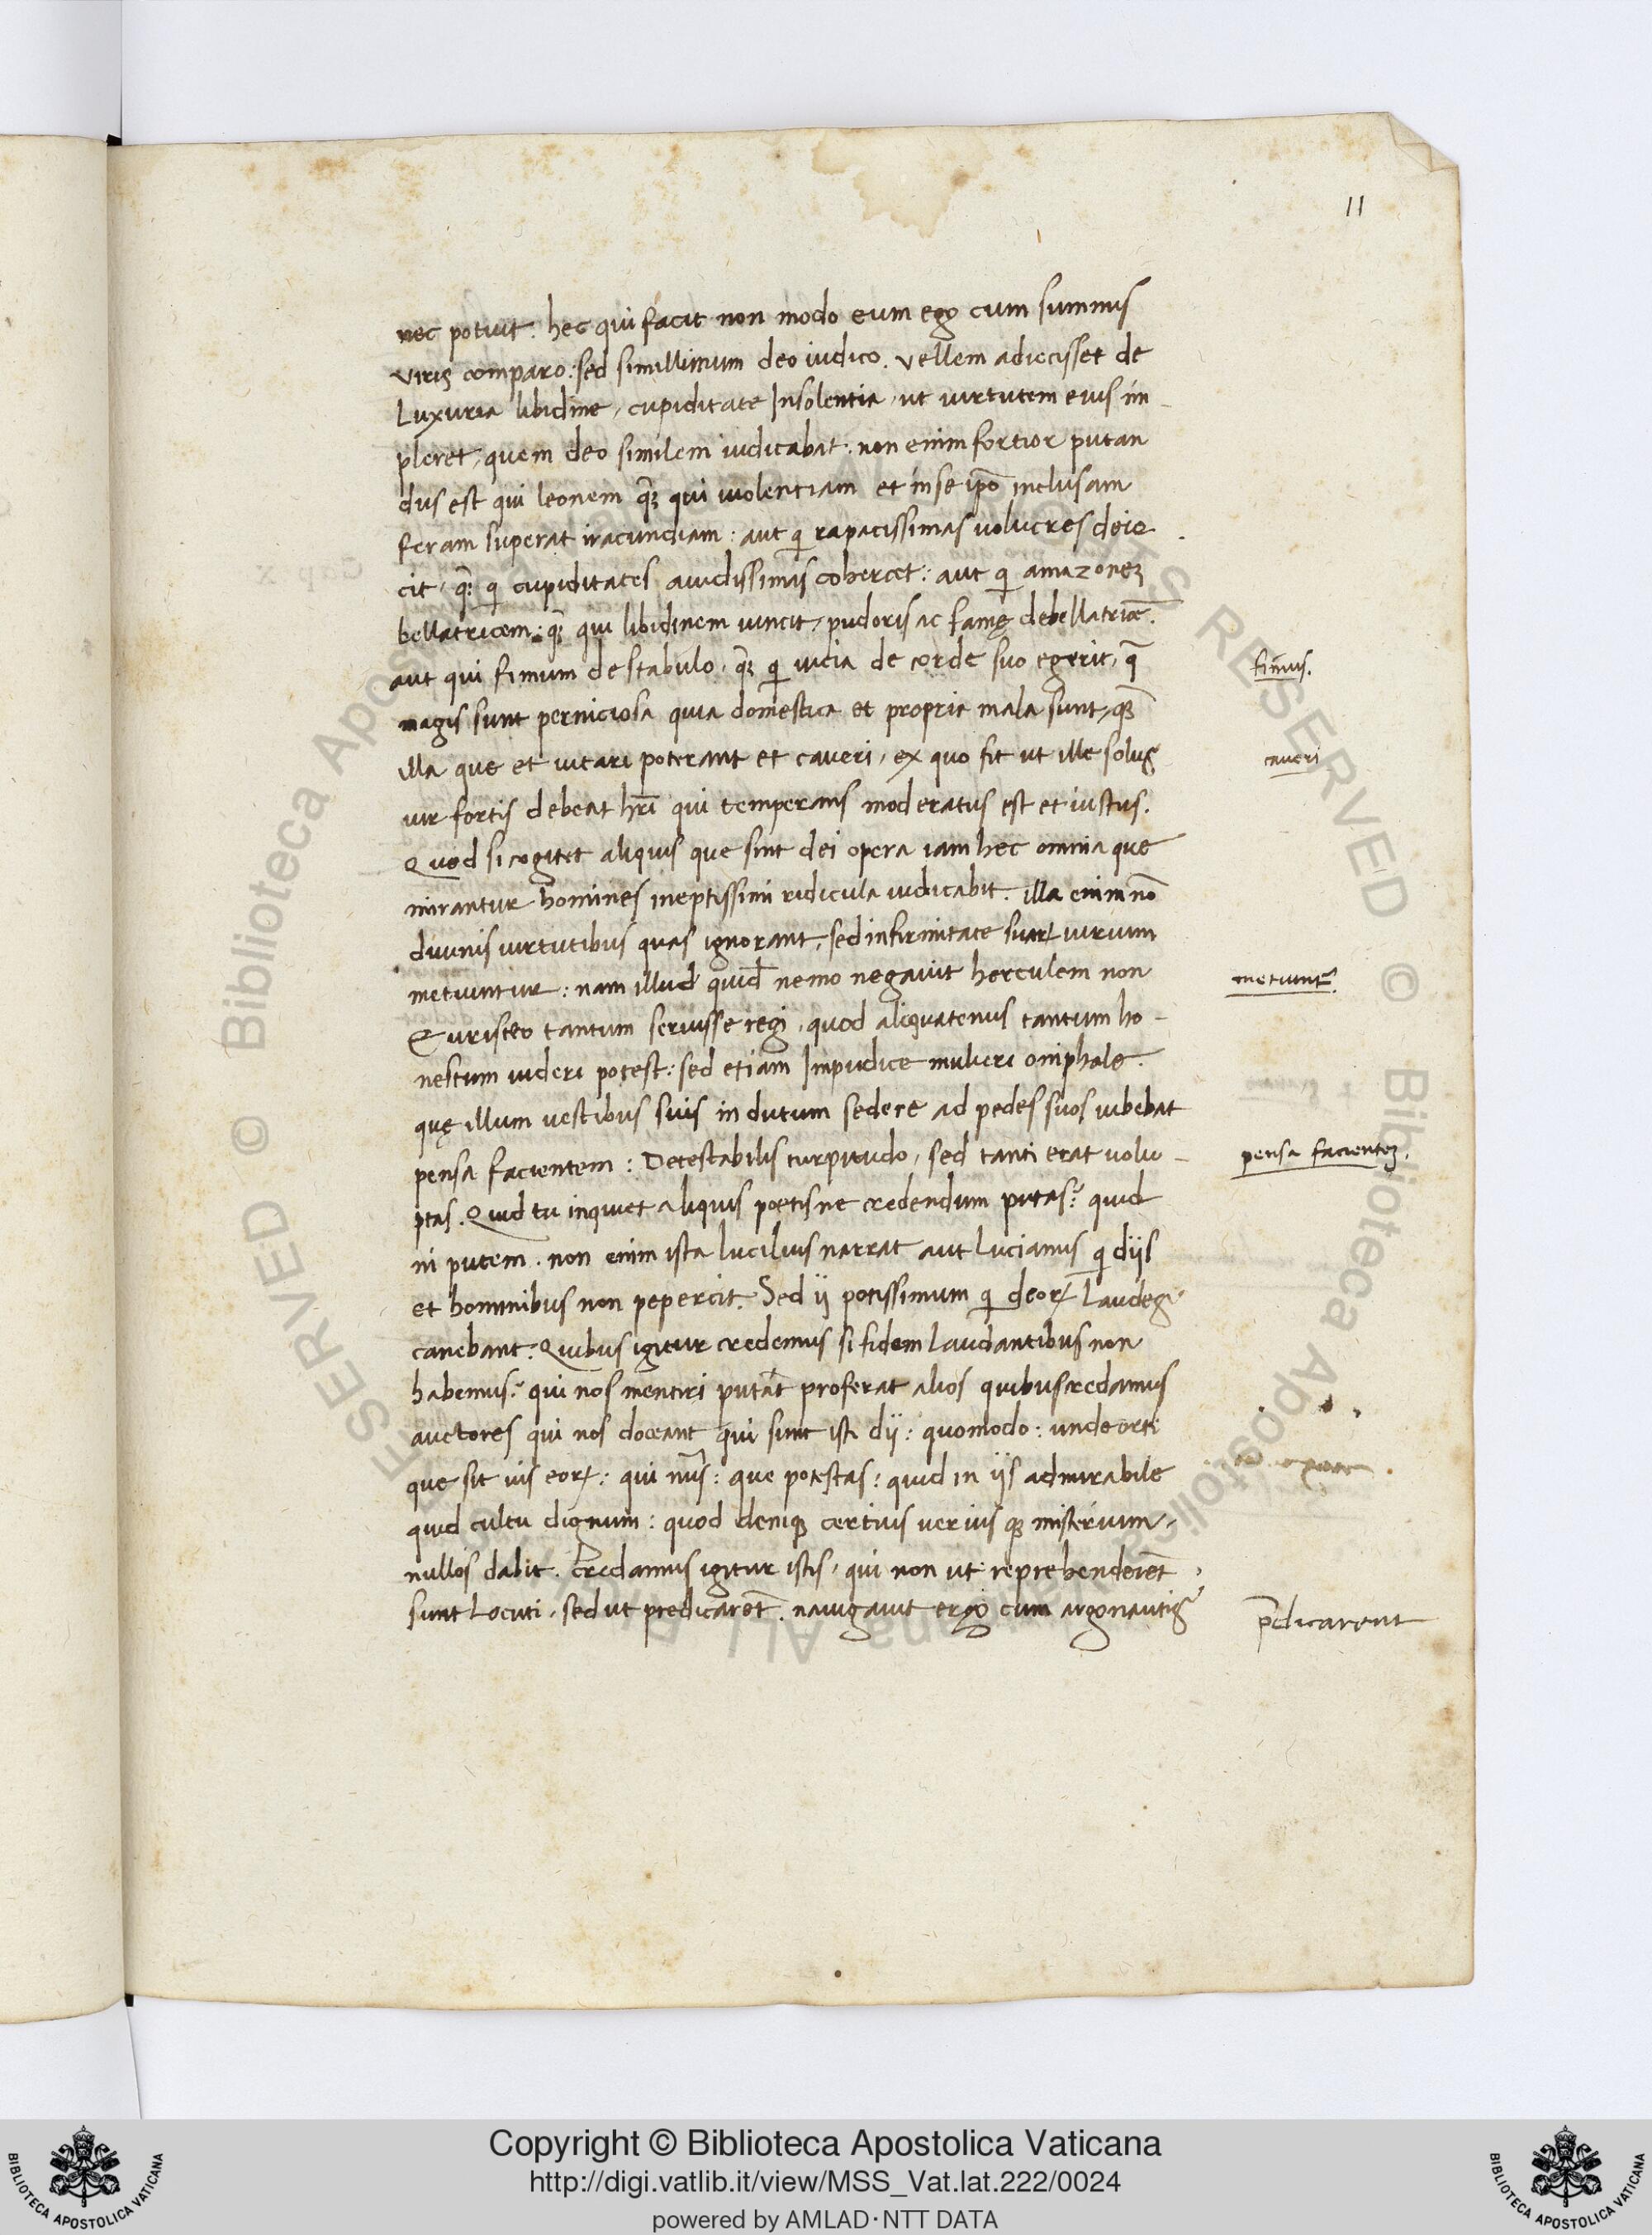 11
nec potuit: hec qui facit non modo eum ego cum summis
viris comparo: sed simillimum deo iudico. Vellem adiecisset de
Luxuria libidine, cupiditate Insolentia, ut uirtutem eius im-
pleret, quem deo similem iudicabat: non enim fortior putan
dus est qui leonem q̃ȝ qui uiolentiam et in se ip̃o inclusam
feram superat iracundiam: aut q̣ rapacissimas uolucres deie
cit, q̃ȝ q̣ cupiditates auidissimas cohercet: aut q̣ amazoneȝ
bellatricem: q̃ȝ qui libidinem uincit, pudoris ac famę debellatricē.
aut qui fimum de stabulo, q̃ȝ q̣ uicia de corde suo egerit, q̄
magis sunt perniciosa quia domestica et propria mala sunt, q̃ȝ
illa que et uitari poterant et caueri, ex quo fit ut ille solus
uir fortis debeat hr̄i qui temperans moderatus est et iustus.
Quod si cogitet aliquis que sint dei opera iam hec omnia que
mirantur homines ineptissimi ridicula iudicabit. illa enim nō
diuinis uirtutibus quas ignorant, sed infirmitate suaꝝ uirium
metiuntur: nam illud quidē nemo negauit herculem non
Euristeo tantum seruisse regi, quod aliquatenus tantum ho-
nestum uideri potest: sed etiam Impudice mulieri omphale.
quę illum uestibus suis indutum sedere ad pedes suos iubebat
pensa facientem: Detestabilis turpitudo, sed tanti erat uolu-
ptas. Quid tu inquiet aliquis poetisne credendum putas? quid
ni putem. non enim ista lucilius narrat aut Lucianus q̣ diis
et hominibus non pepercit. Sed ii potissimum q̣ deoꝝ Laudes
canebant. Quibus igitur credemus si fidem laudantibus non
habemus? qui nos mentiri putat proferat alios quibus credamus
auctores qui nos doceant qui sint isti dij: quomodo: unde orti
que sit uis eoꝝ: qui nūs: que potestas: quid in ijs admirabile
quid cultu dignum: quod deniqȝ certius uerius qȝ misterium,
nullos dabit. Credamus igitur istis, qui non ut reprehenderēt
sunt Locuti, sed ut predicarēt. nauigauit ergo cum argonautis
fimus.
caueri
metiunt̄.
pensa facienteȝ.
p̄dicarent
Copyright © Biblioteca Apostolica Vaticana
http://digi.vatlib.it/view/MSS_Vat.lat.222/0024
powered by AMLAD·NTT DATA
BIBLIOTECA APOSTOLICA VATICANA
BIBLIOTECA APOSTOLICA VATICANA
© Biblioteca Apostolica Vaticana ALL RIGHTS RESERVED